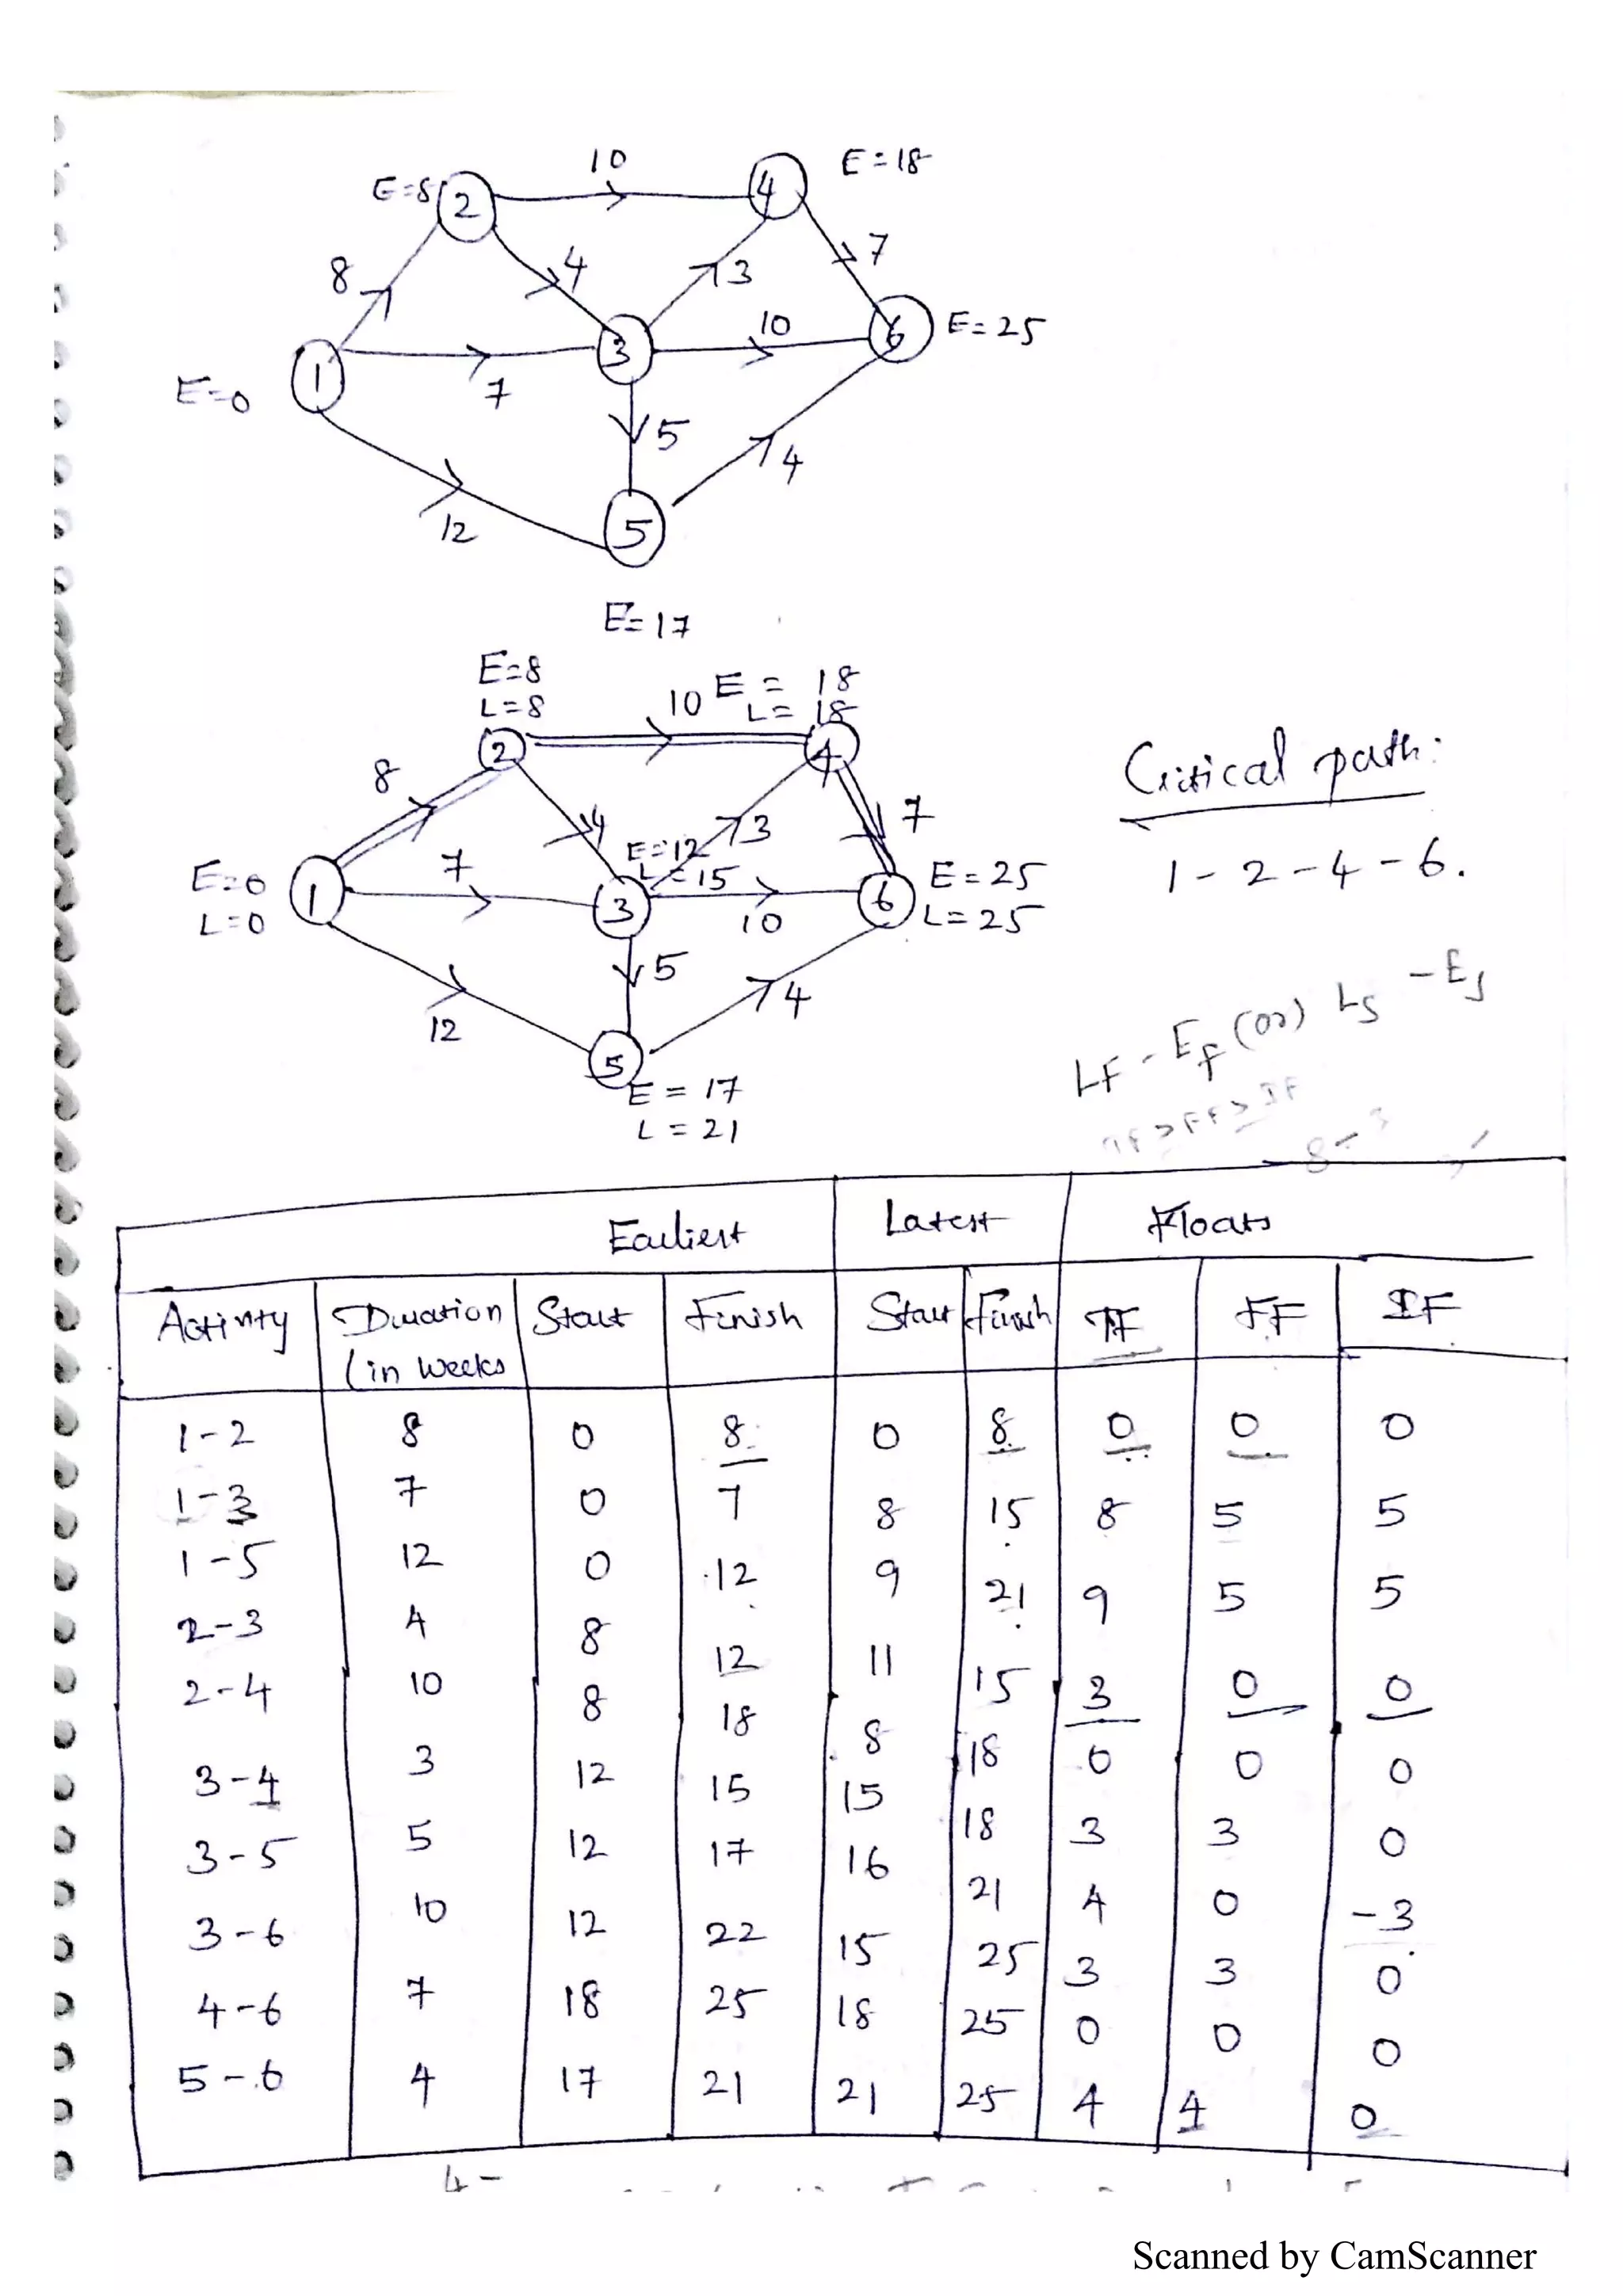 10
E=18
E=8
2
4
8
4
3
7
10
1
3
6
E=25
E=0
7
5
4
12
5
E=17
E=8
L=8
10
E = 18
L= 18
2
4
Critical path:
8
7
4
3
7
E=12
L=15
1-2-4-6.
E=0
L=0
1
3
10
6
E=25
L=25
5
4
12
5
LF - EF (or) LS - ES
TF>FF>IF
E = 17
L = 21
Earliest Latest Floats
Activity Duration Start Finish Start Finish TF FF IF
(in weeks
1-2 8 0 8 0 8 0 0 0
1-3 7 0 7 8 15 8 5 5
1-5 12 0 12 9 21 9 5 5
2-3 4 8 12 11 15 3 0 0
2-4 10 8 18 8 18 0 0 0
3-4 3 12 15 15 18 3 3 0
3-5 5 12 17 16 21 4 0 -3
3-6 10 12 22 15 25 3 3 0
4-6 7 18 25 18 25 0 0 0
5-6 4 17 21 21 25 4 4 0
Scanned by CamScanner